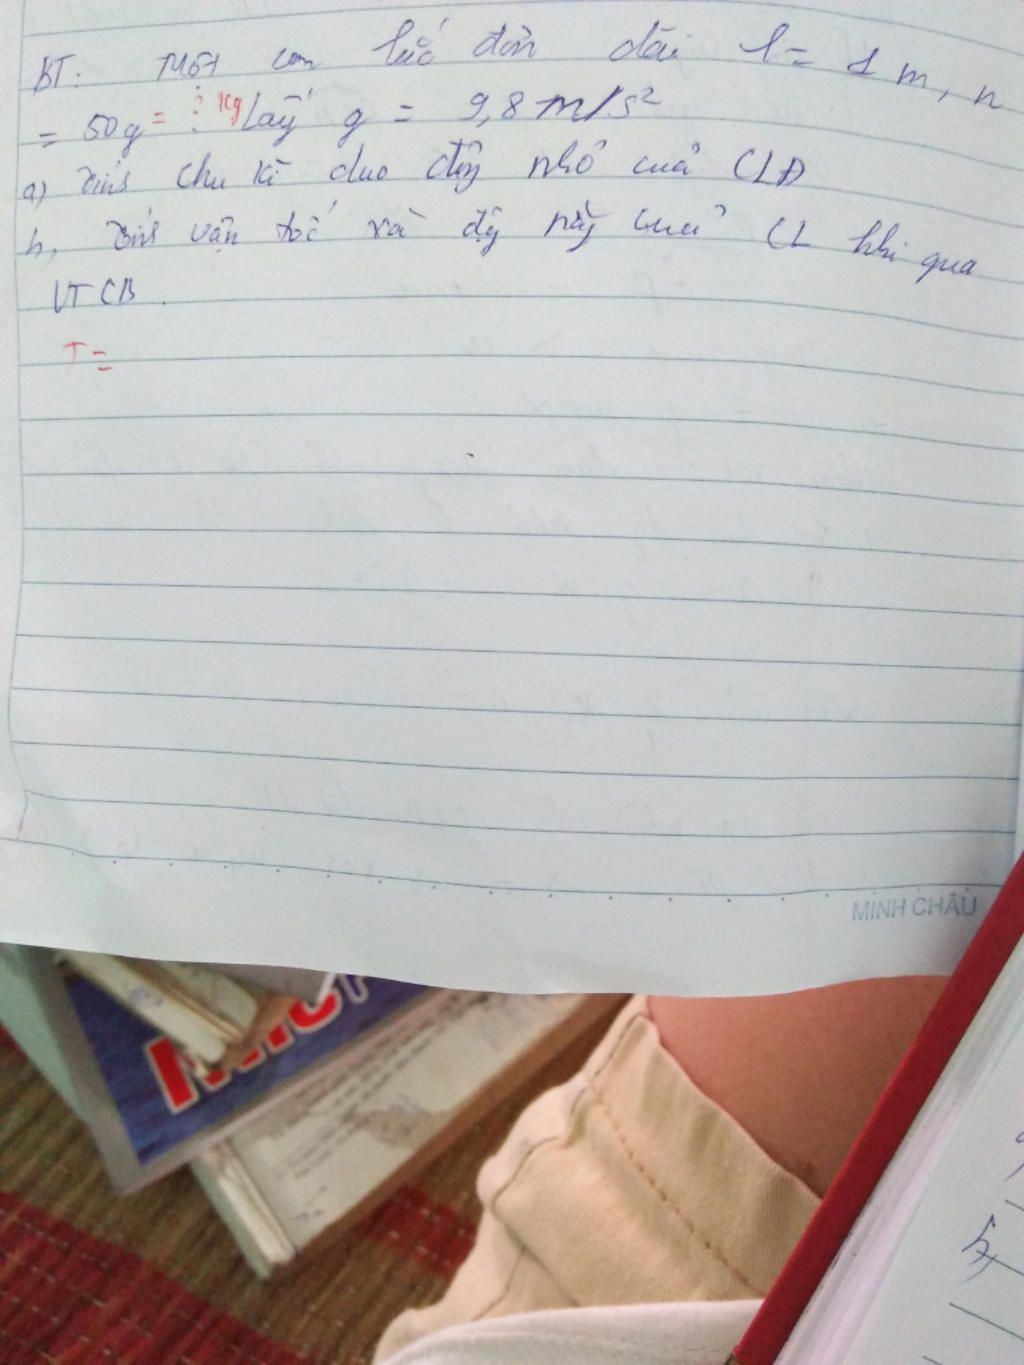 BT. Một con lắc đơn dài l = 1 m, m
= 50g = ? kg Lấy g = 9,8 m/s²
a) Tính chu kì dao động nhỏ của CLĐ
b, Tính vận tốc và động năng của CL khi qua
VTCB.
T =
MINH CHÂU